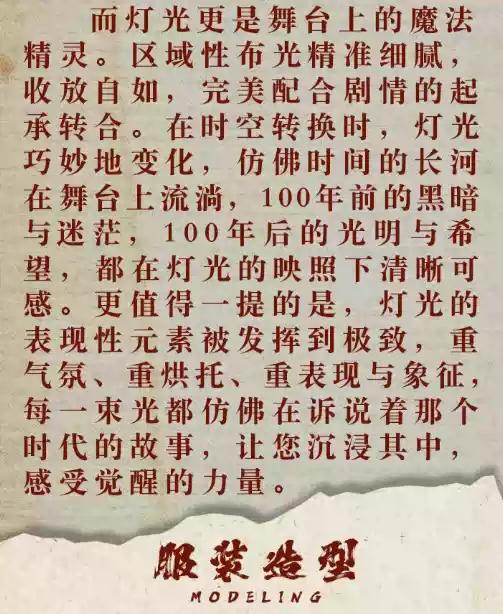 而灯光更是舞台上的魔法
精灵。区域性布光精准细腻，
收放自如，完美配合剧情的起
承转合。在时空转换时，灯光
巧妙地变化，仿佛时间的长河
在舞台上流淌，100年前的黑暗
与迷茫，100年后的光明与希
望，都在灯光的映照下清晰可
感。更值得一提的是，灯光的
表现性元素被发挥到极致，重
气氛、重烘托、重表现与象征，
每一束光都仿佛在诉说着那个
时代的故事，让您沉浸其中，
感受觉醒的力量。
服装造型
MODELING